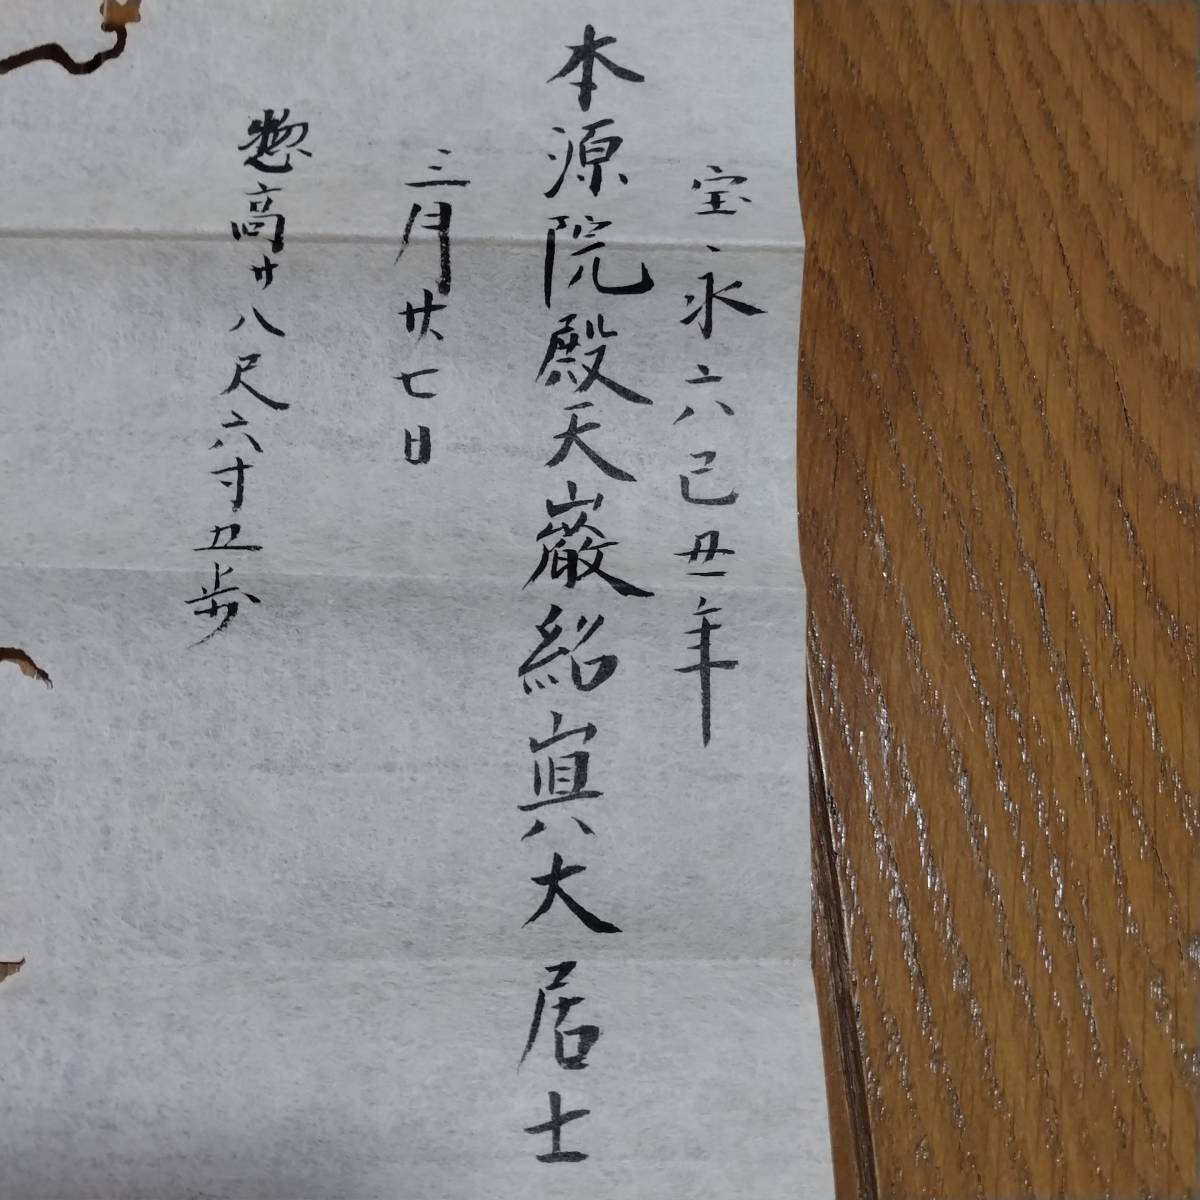 宝永六己丑年
本源院殿天巌紹眞大居士
三月廿七日
惣高廿八尺六寸五歩